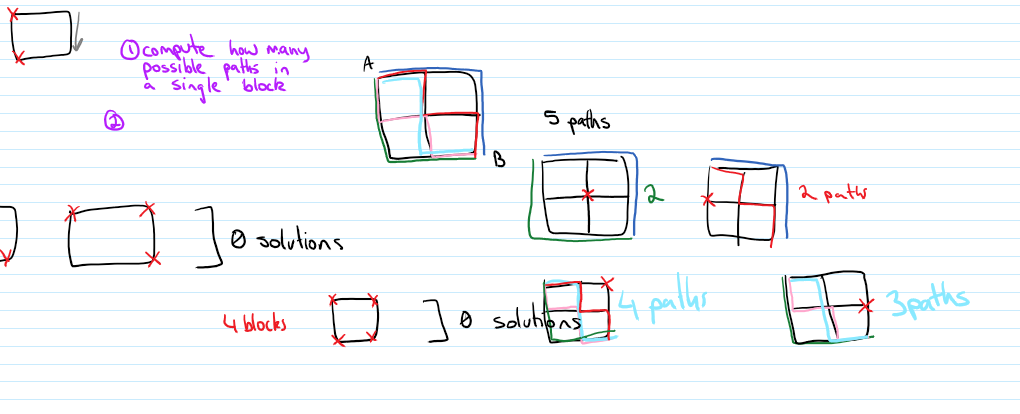 ① compute how many
possible paths in
a single block
②
A
B
5 paths
2
2 paths
0 solutions
4 blocks
0 solutions
4 paths
3 paths